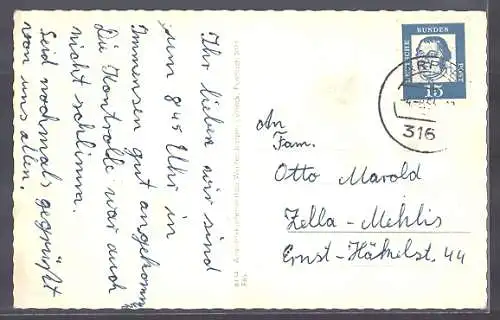 Ihr lieben wir sind
um 8 45 Uhr in
Immensen gut angekommen
Die Kontrolle war auch
nicht schlimm.
Seid nochmals gegrüßt
von uns allen.
DEUTSCHE
BUNDES
POST
15
316
An
Fam.
Otto Marold
Zella-Mehlis
Ernst-Häkelst. 44